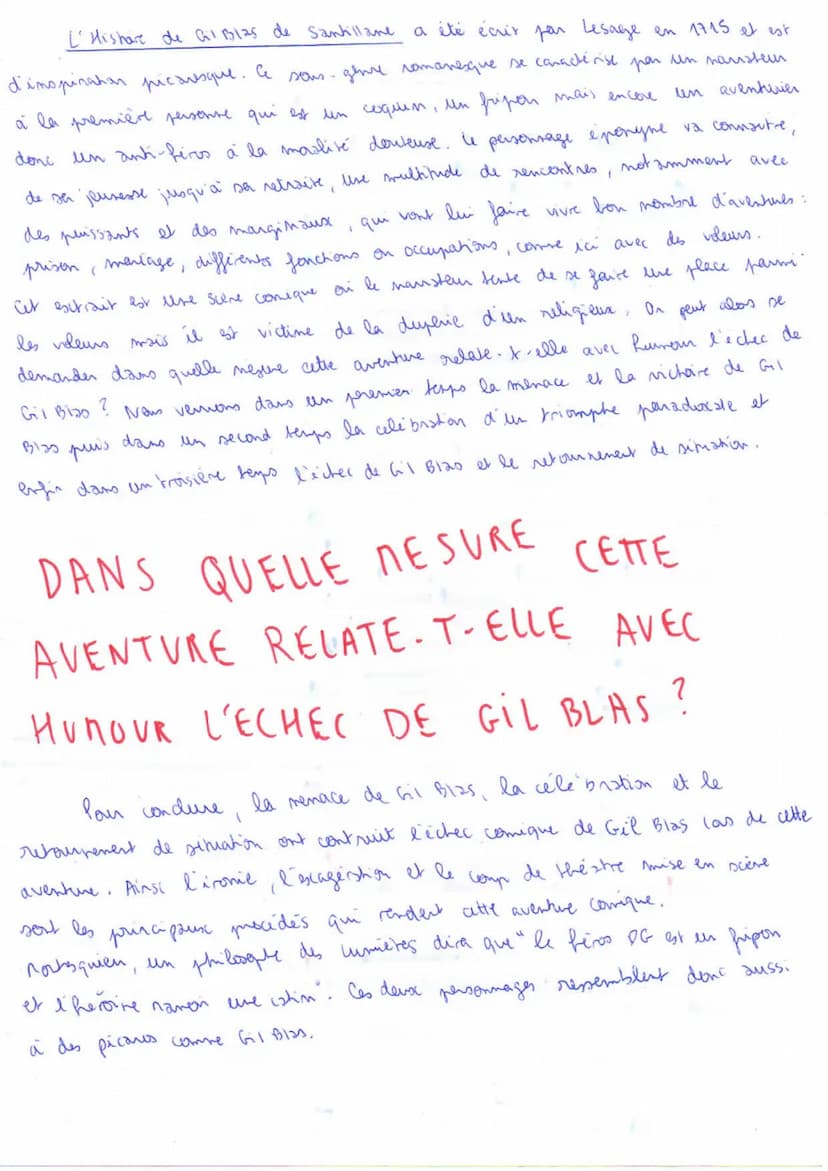 L'Histoire de Gil Blas de Santillane a été écrit par Lesage en 1715 et est
d'inspiration picaresque. Ce sous-genre romanesque se caractérise par un narrateur
à la première personne qui est un coquin, un fripon mais encore un aventurier
donc un anti-héros à la moralité douteuse. Le personnage éponyme va connaître,
de sa jeunesse jusqu'à sa retraite, une multitude de rencontres, notamment avec
des puissants et des marginaux, qui vont lui faire vivre bon nombre d'aventures :
prison, mariage, différents fonctions ou occupations, comme ici avec des voleurs.
Cet extrait est une scène comique où le narrateur tente de se faire une place parmi
les voleurs mais il est victime de la duperie d'un religieux. On peut alors se
demander dans quelle mesure cette aventure relate-t-elle avec humour l'échec de
Gil Blas ? Nous verrons dans un premier temps la menace et la victoire de Gil
Blas puis dans un second temps la célébration d'un triomphe paradoxale et
enfin dans un troisième temps l'échec de Gil Blas et le retournement de situation.
DANS QUELLE MESURE CETTE
AVENTURE RELATE-T-ELLE AVEC
HUMOUR L'ECHEC DE GIL BLAS ?
Pour conclure, la menace de Gil Blas, la célébration et le
retournement de situation ont contruit l'échec comique de Gil Blas las de cette
aventure. Ainsi l'ironie, l'exagération et le coup de théâtre mise en scène
sont les principaux procédés qui rendent cette aventure comique.
Montesquieu, un philosophe des Lumières dira que "le héros DG est un fripon
et l'héroïne Manon une catin". Ces deux personnages ressemblent donc aussi
à des picaros comme Gil Blas.